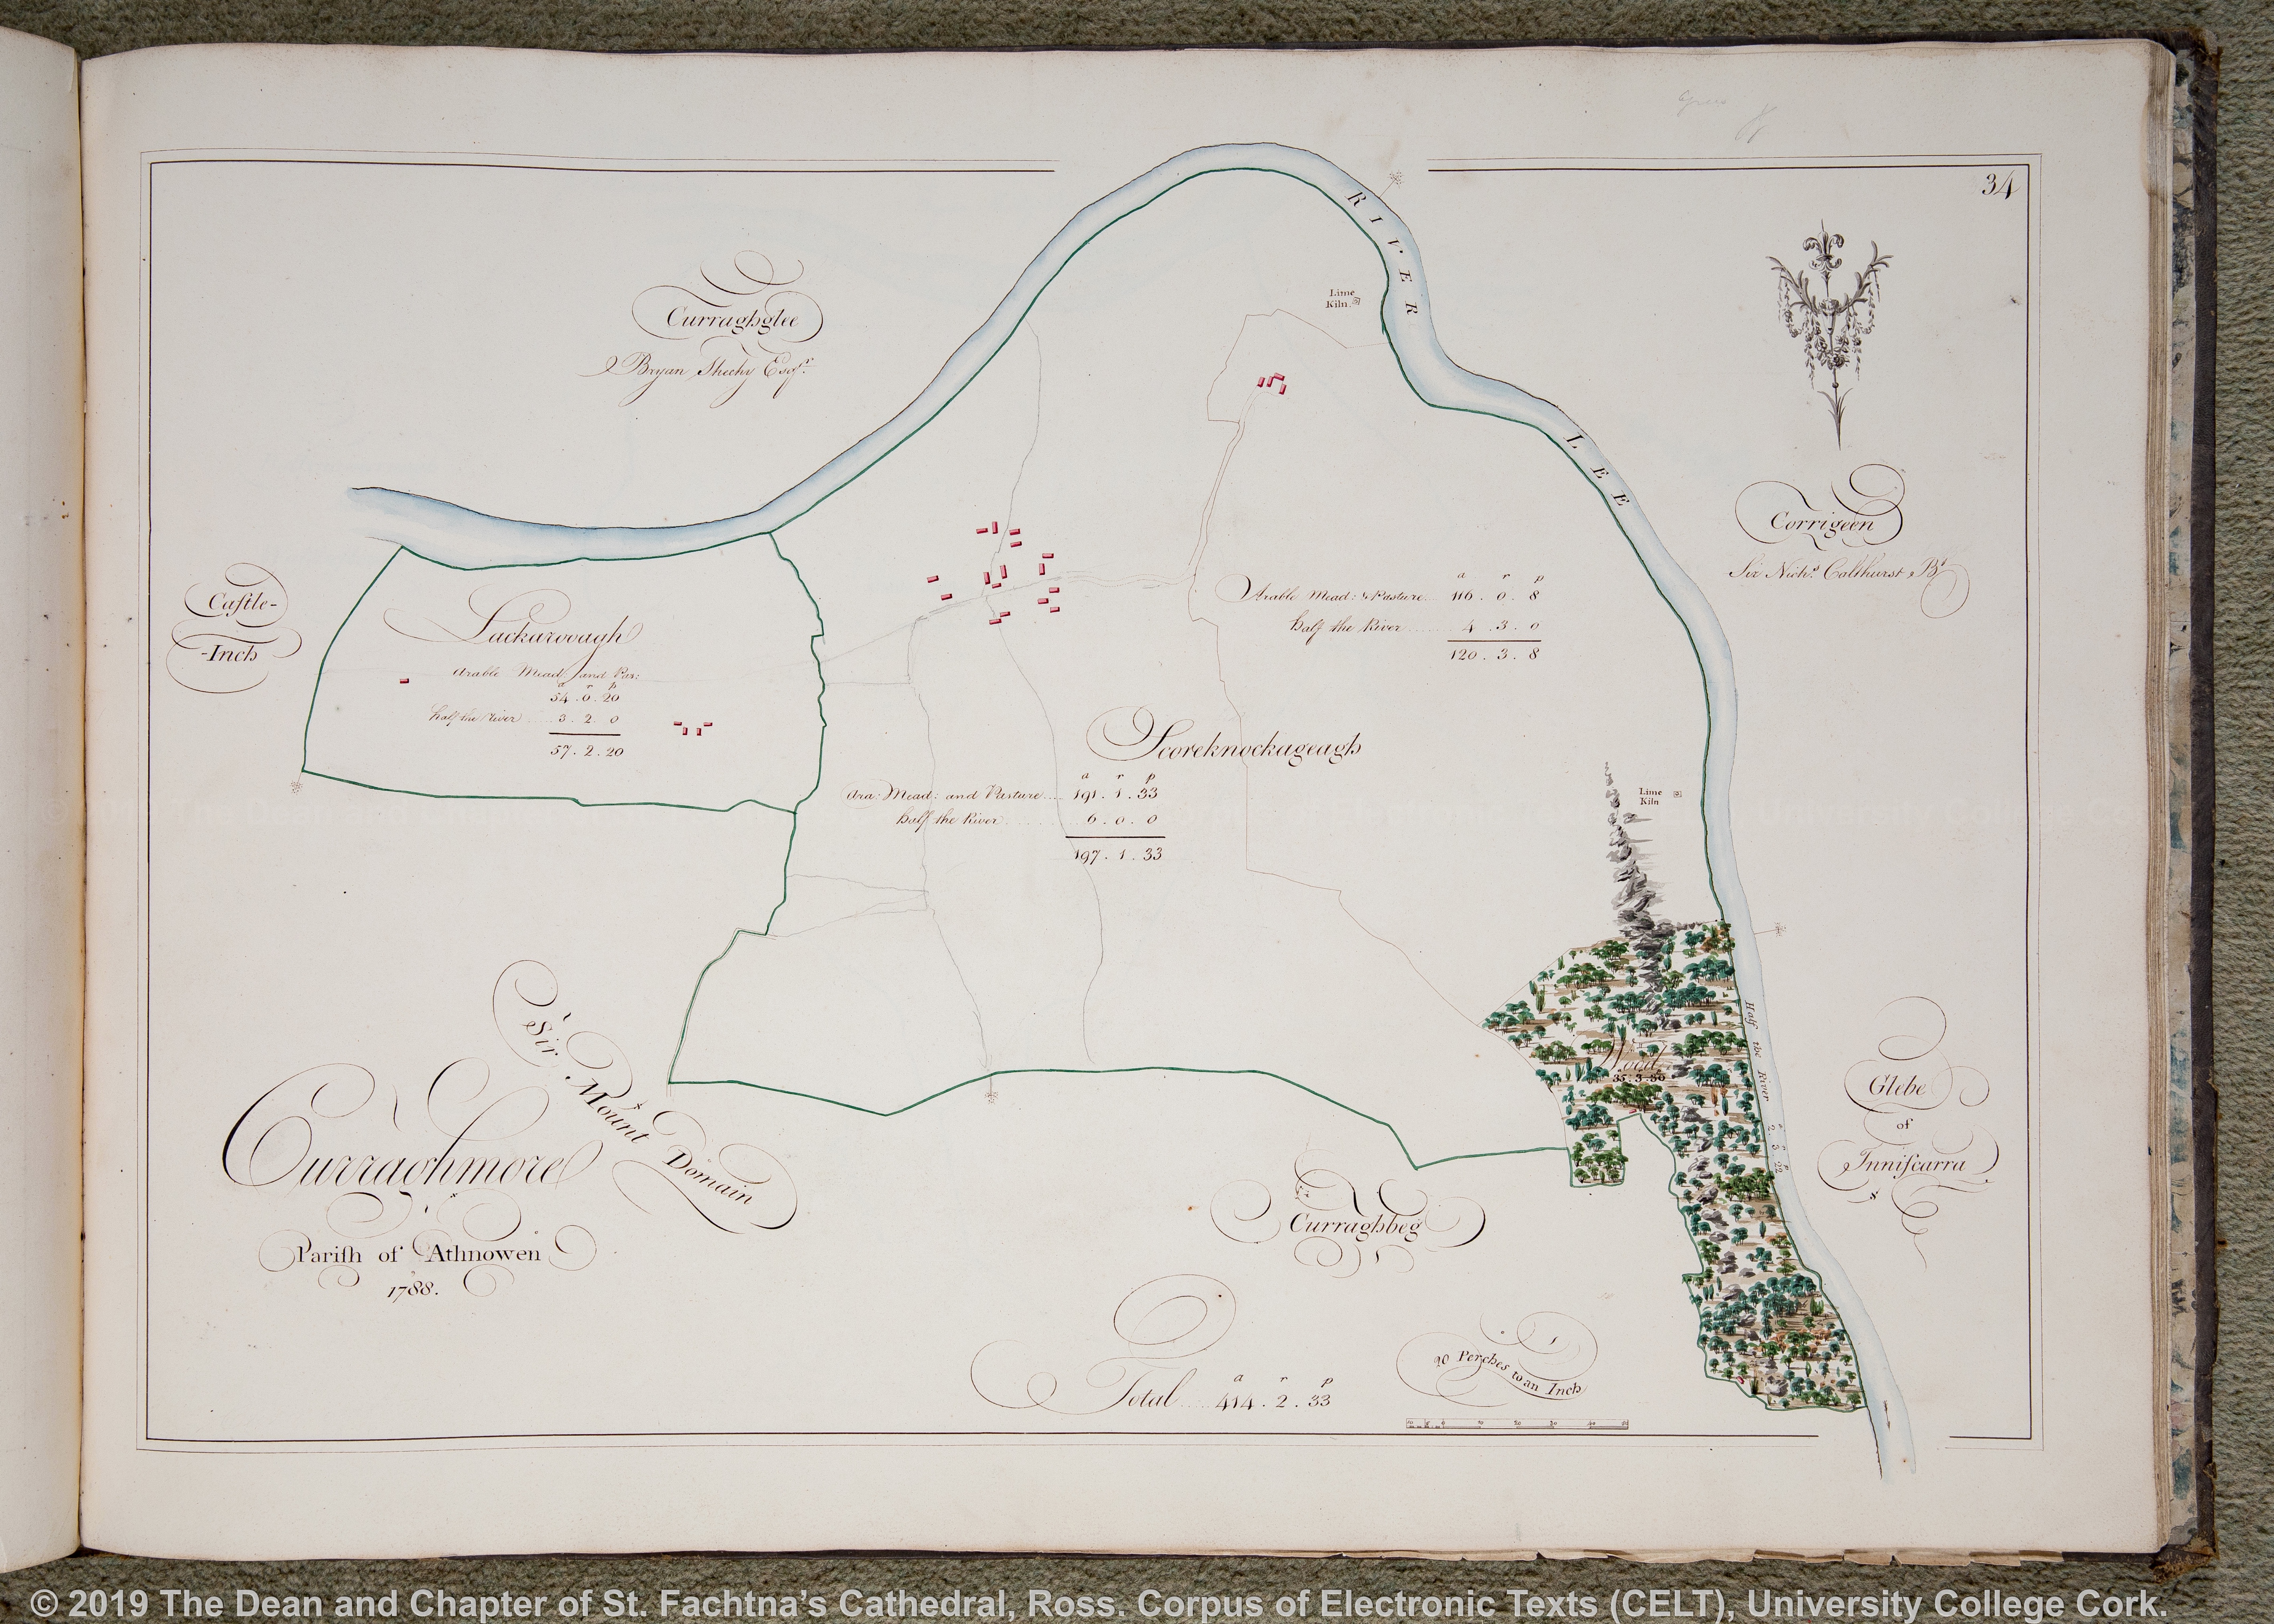 34
RIVER LEE
Lime
Kiln
Curraghglee
Bryan Sheehy Esqr.
Corrigeen
Sir Nichs. Colthurst Bt.
Castle-
-Inch
Lackaroough
Arable Mead: and Pas:
a r p
54 . 0 . 20
half the River ..... 3 . 2 . 0
57 . 2 . 20
Arable Mead: & Pasture ... a r p
116 . 0 . 8
half the River ....... 4 . 3 . 0
120 . 3 . 8
Scoreknockageagh
a r p
Ara: Mead: and Pasture .... 191 . 1 . 33
half the River .......... 6 . 0 . 0
197 . 1 . 33
Lime
Kiln
Wood
35:3:30
Half the River
a r p
2 3 22
Sir Mount Domain
Glebe
of
Inniscarra
Curraghmore
Parish of Athnowen
1788.
Curraghbeg
a r p
Total ..... 414 . 2 . 33
20 Perches to an Inch
10 20 30 40
© 2019 The Dean and Chapter of St. Fachtna’s Cathedral, Ross. Corpus of Electronic Texts (CELT), University College Cork.